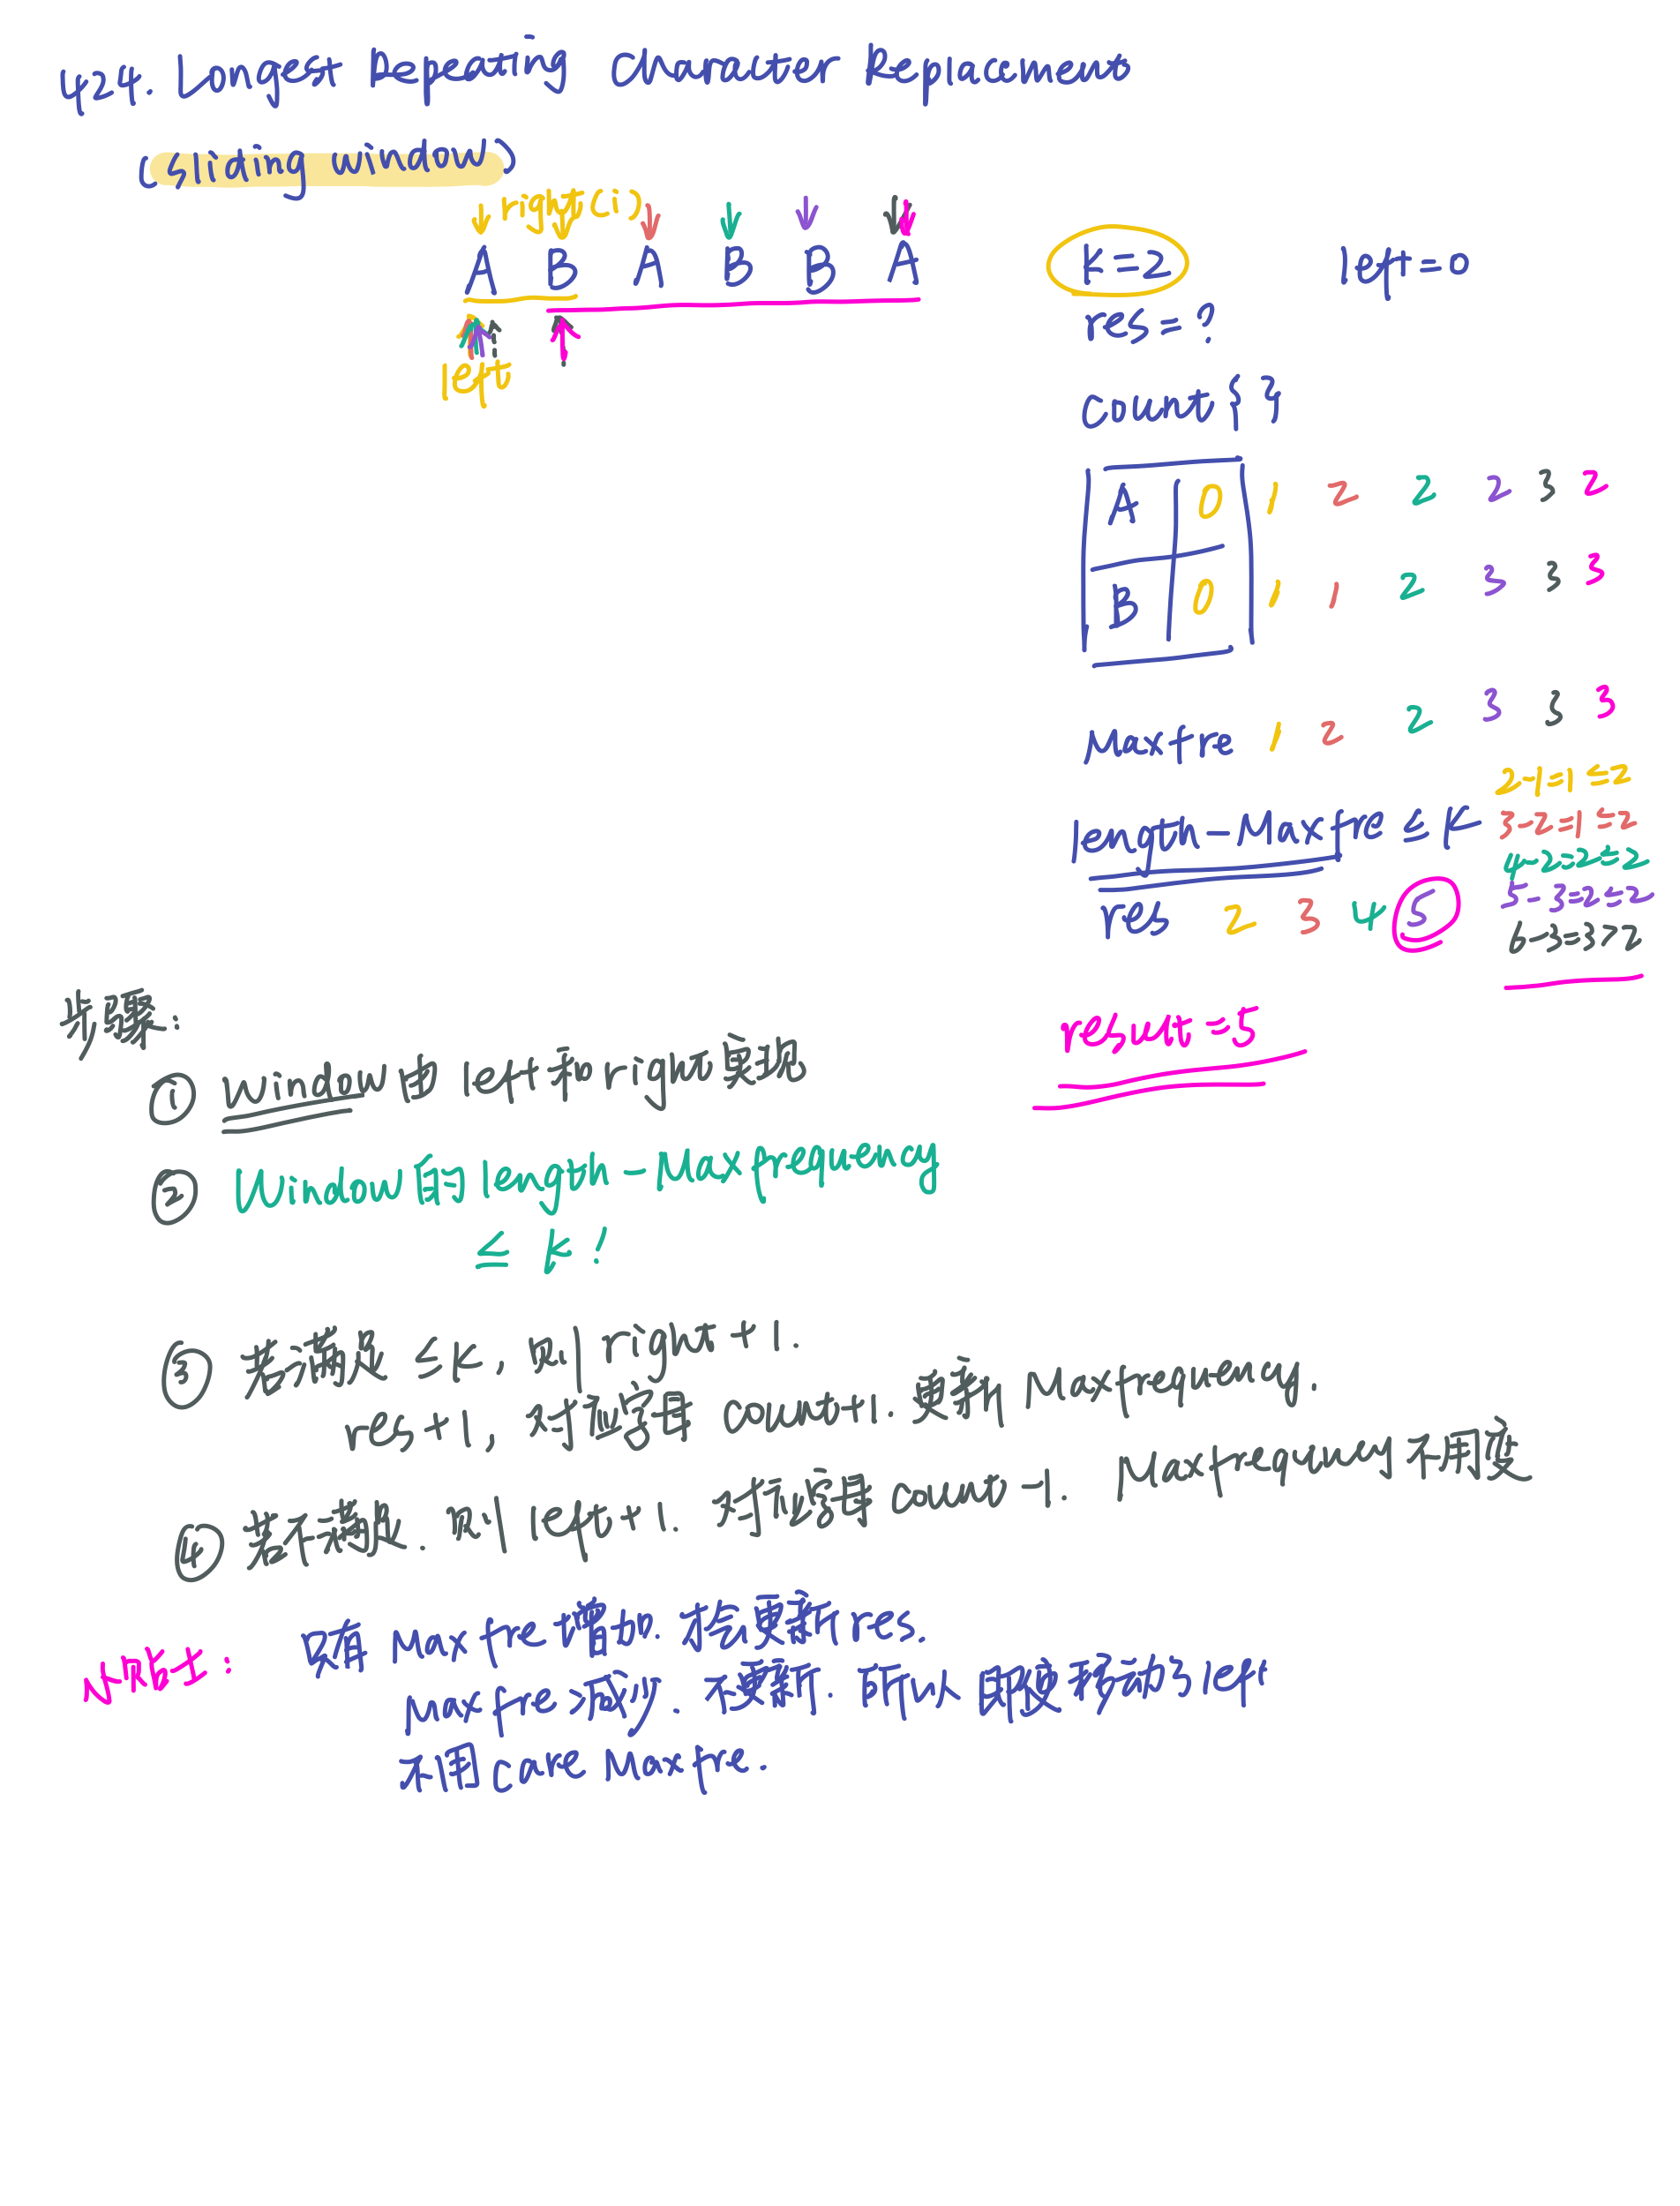 424. Longest Repeating Character Replacement
(sliding window)
right(i)
A B A B B A
left
K=2 left=0
res=?
count{ }
A 0 1 2 2 2 3 2
B 0 1 1 2 3 3 3
Maxfre 1 2 2 3 3 3
length-Maxfre ≤ K
2-1=1≤2
3-2=1≤2
4-2=2≤2
5-3=2≤2
6-3=3>2
res 2 3 4 5
result=5
步骤:
① window 由 left 和 right 实现
② Window的length-Max frequency
≤ k!
③ 若满足 ≤K, 则 right+1.
res+1, 对应字母 count+1. 更新 Maxfrequency.
④ 若不满足. 则 left+1. 对应字母 count-1. Maxfrequency 不用变
小贴士: 只有 Maxfre 增加. 才会更新 res.
Maxfre 减少. 不更新. 所以即使移动了 left
不用 care Maxfre.